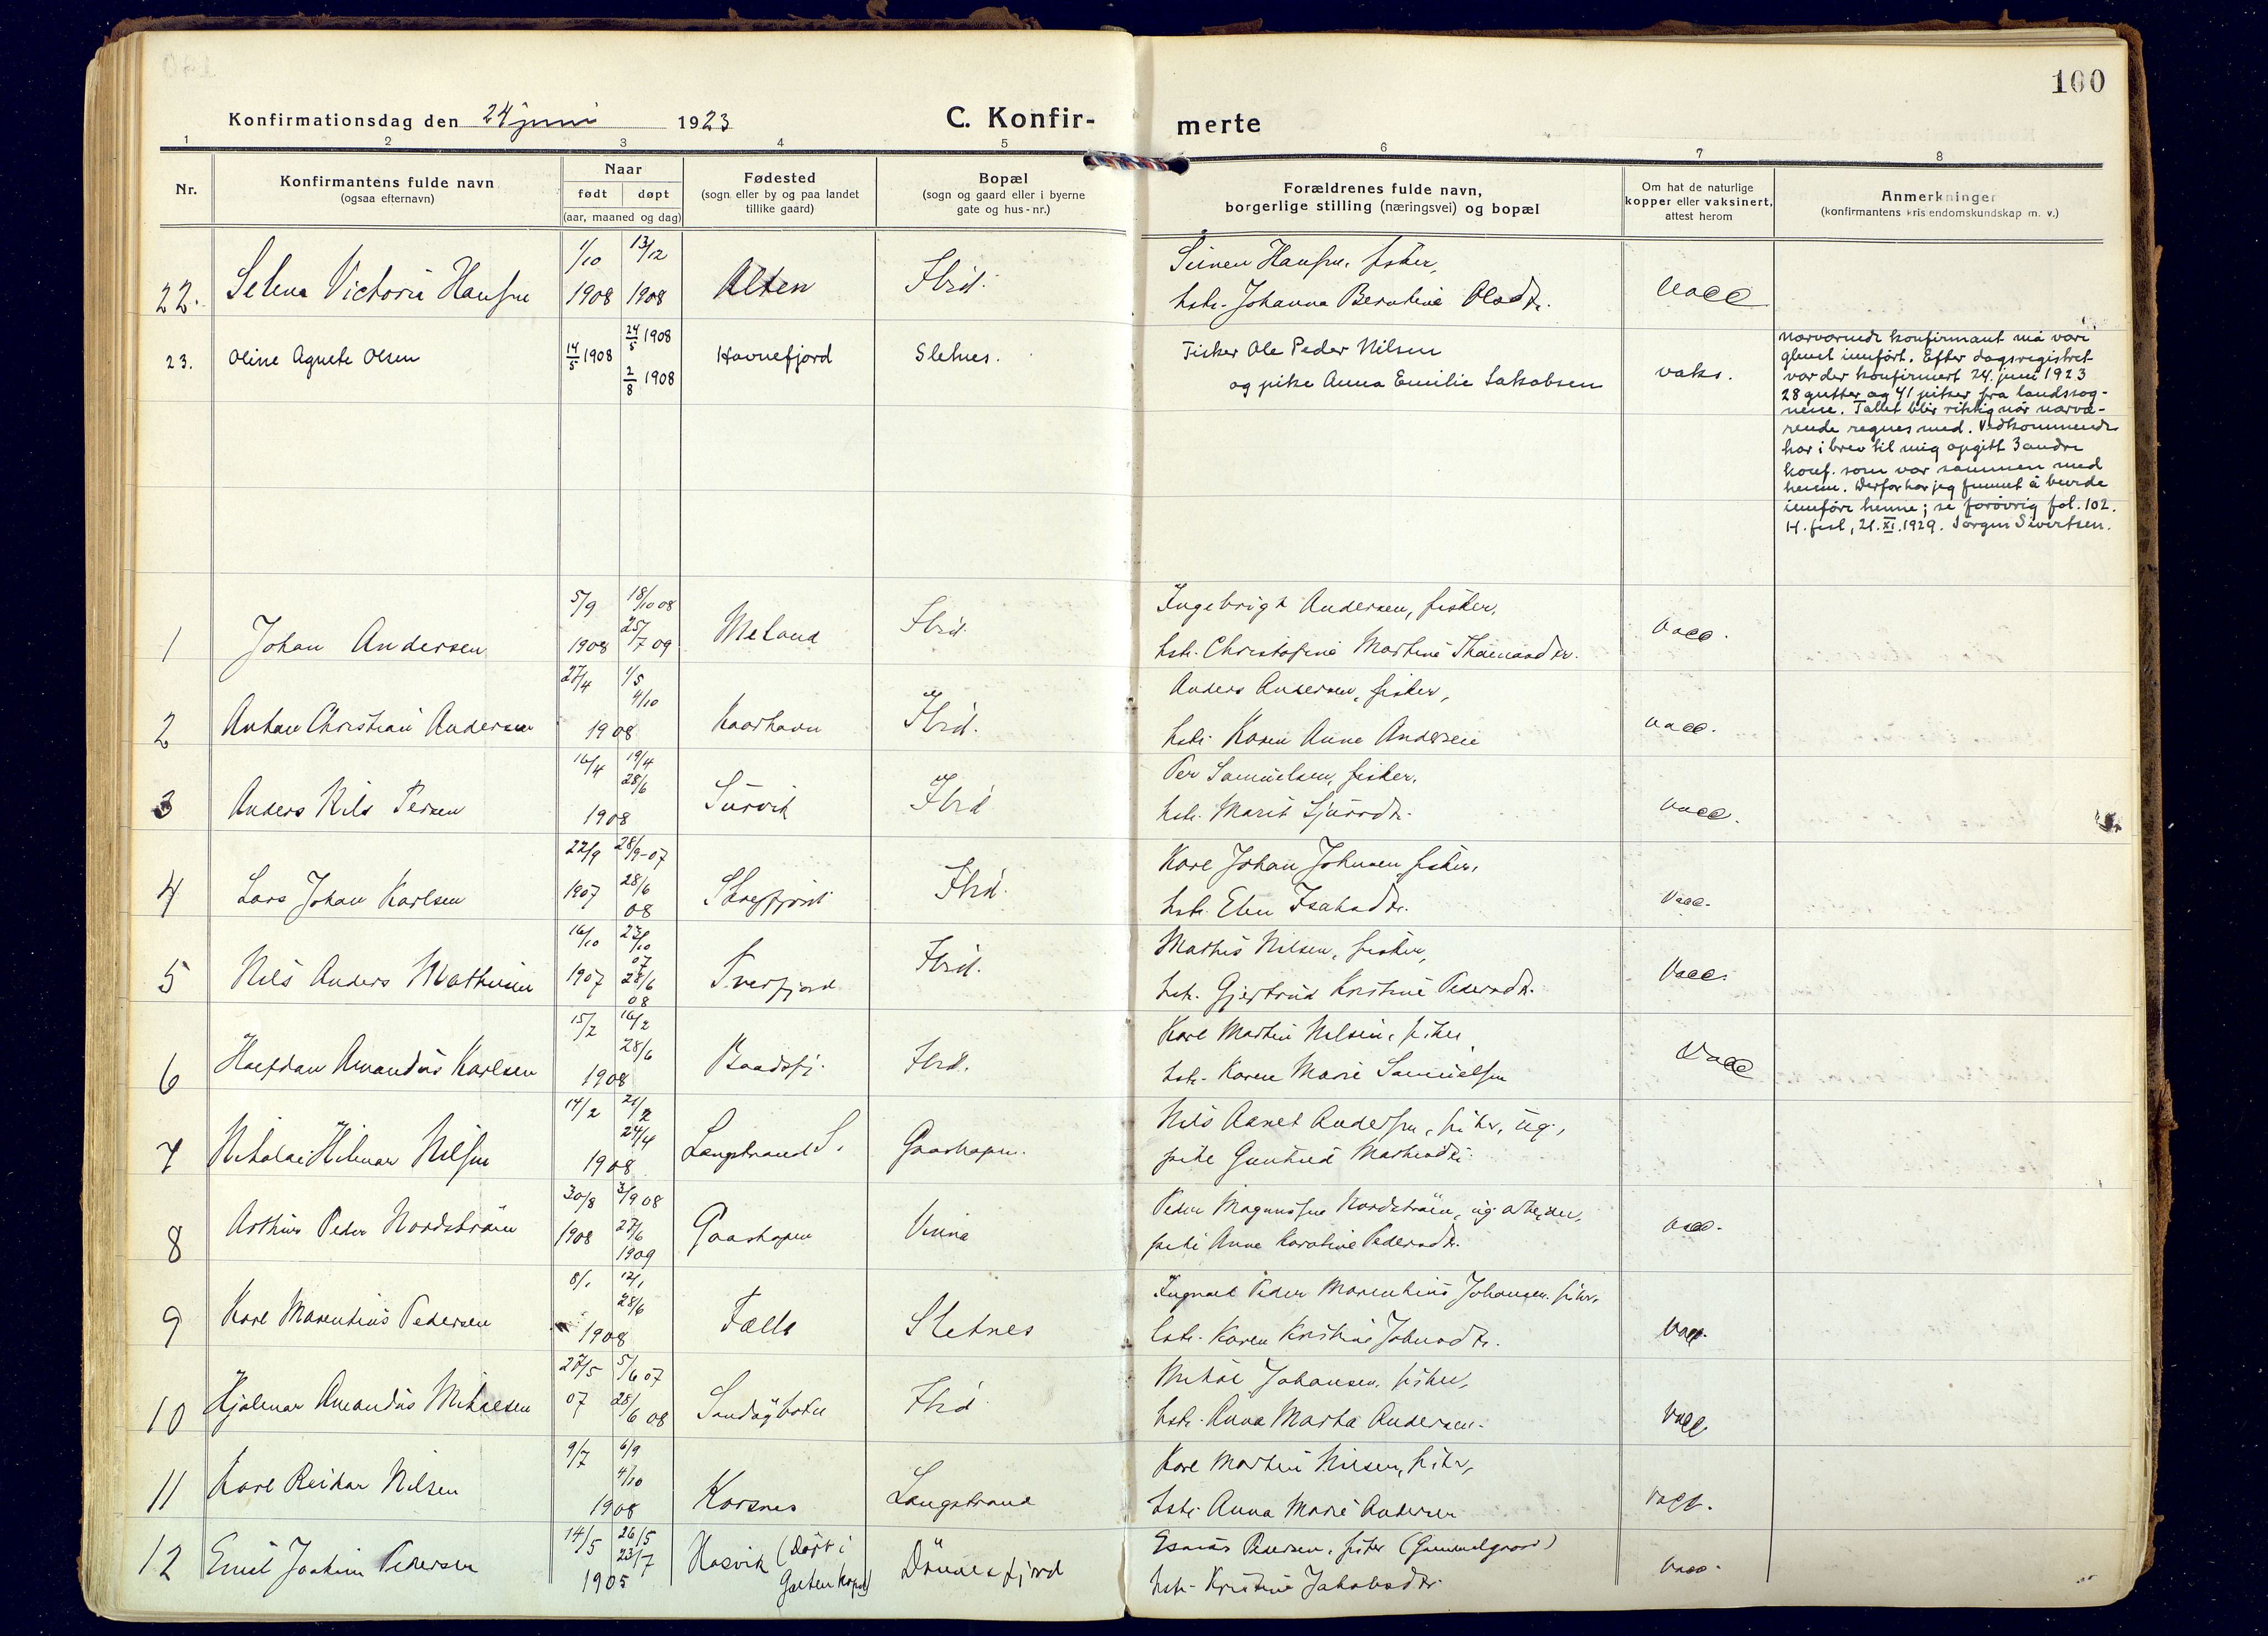 100
Konfirmationsdag den 24 juni 1923
C. Konfir-
merte
1 2 3 4 5 6 7 8
Nr.
Konfirmantens fulde navn
(ogsaa efternavn)
Naar
født døpt
(aar, maaned og dag)
Fødested
(sogn eller by og paa landet
tillike gaard)
Bopæl
(sogn og gaard eller i byerne
gate og hus-nr.)
Forældrenes fulde navn,
borgerlige stilling (næringsvei) og bopæl
Om hat de naturlige
kopper eller vaksinert,
attest herom
Anmerkninger
(konfirmantens kris endomskundskap m. v.)
1/10 13/12 Hansen, fisker,
22. Selma Victoria Hansen 1908 1908 Alten Ibid. hstr. Johanna Berntine Olsdtr. vacc
23. Oline Agnete Olsen 14/5 1908 24/5 1908 2/8 1908 Havnefjord Sletnes. Fisker Ole Peder Nilsen
og pike Anna Emilie Jakobsen vaks.
nærværende konfirmant må være
glemt innført. Efter dagsregistret
var der konfirmert 24. juni 1923
28 gutter og 41 piker fra landssog-
nene. Tallet blir riktig når nærvæ-
rende regnes med. Vedkommende
har i brev til mig opgitt 3 andre
konf. som var sammen med
henne. Derfor har jeg funnet å burde
innføre henne; se forøvrig fol. 102.
H.fest, 21.XI.1929. Jørgen Sivertsen.
5/9 18/10 08 Ingebrigt Andersen, fisker,
1 Johan Andersen 1908 25/7 09 Meland Ibid. hstr. Christofine Martine vacc.
27/4 1/5 4/10 Anders Andersen, fisker,
2 Anton Christian Andersen 1908 Kaarhavn Ibid. hstr. Karen Anna Andersen vacc.
16/4 19/4 28/6 Per Samuelsen, fisker,
3 Anders Nils Persen 1908 Survik Ibid hstr. Marit vacc.
22/9 28/9-07 Karl Johan Johnsen, fisker,
4 Lars Johan Karlsen 1907 28/6 08 Ibid. hstr. Elen Isaksdtr. Vacc.
16/10 23/10 07 Mathis Nilsen, fisker,
5 Nils Anders Mathisen 1907 28/6 08 Tverfjord Ibid. hstr. Gjertrud Kristine Pedersdtr. Vacc.
15/2 16/2 28/6 Karl Martin Nilsen, fisker
6 Halfdan Amandus Karlsen 1908 Baadsfj. Ibid. hstr. Karen Marie Samuelsen Vacc
14/2 21/2 24/4 Nils Andersen, fisker, ug.,
7 Nikolai Hilmar Nilsen 1908 Langstrand S. Gaashopen. pike Mathisdtr.
30/8 3/9 08 Peder Magnussen Nordstrøm, ug. arbeider,
8 Arthur Peder Nordstrøm 1908 27/6 1909 Gaashopen Vinna pike Anna Karoline Pedersdtr. vacc.
8/1 12/1 28/6 Ingvald Peder Marentius Johansen. fisker,
9 Karl Marentius Pedersen 1908 Fælle Sletnes hstr. Karen Kristine Johnsdtr. Vacc.
27/5 5/6 07 Mikal Johansen, fisker,
10 Hjalmar Amandus Mikalsen 07 28/6 08 Sandøybotn Ibid hstr. Anna Marta Andersen. Vacc
9/7 6/9 4/10 Karl Martin Nilsen, fisker,
11 Karl Reikar Nilsen 1908 Korsnes Langstrand hstr. Anna Marie Andersen Vacc.
14/5 26/5 23/7 Esaias Pedersen, fisker (Gammelgaard)
12 Emil Joakim Pedersen 1905 Hasvik (Døpt i
Galten kapel) Dønnesfjord hstr. Kristine Jakobsdtr. Vacc.